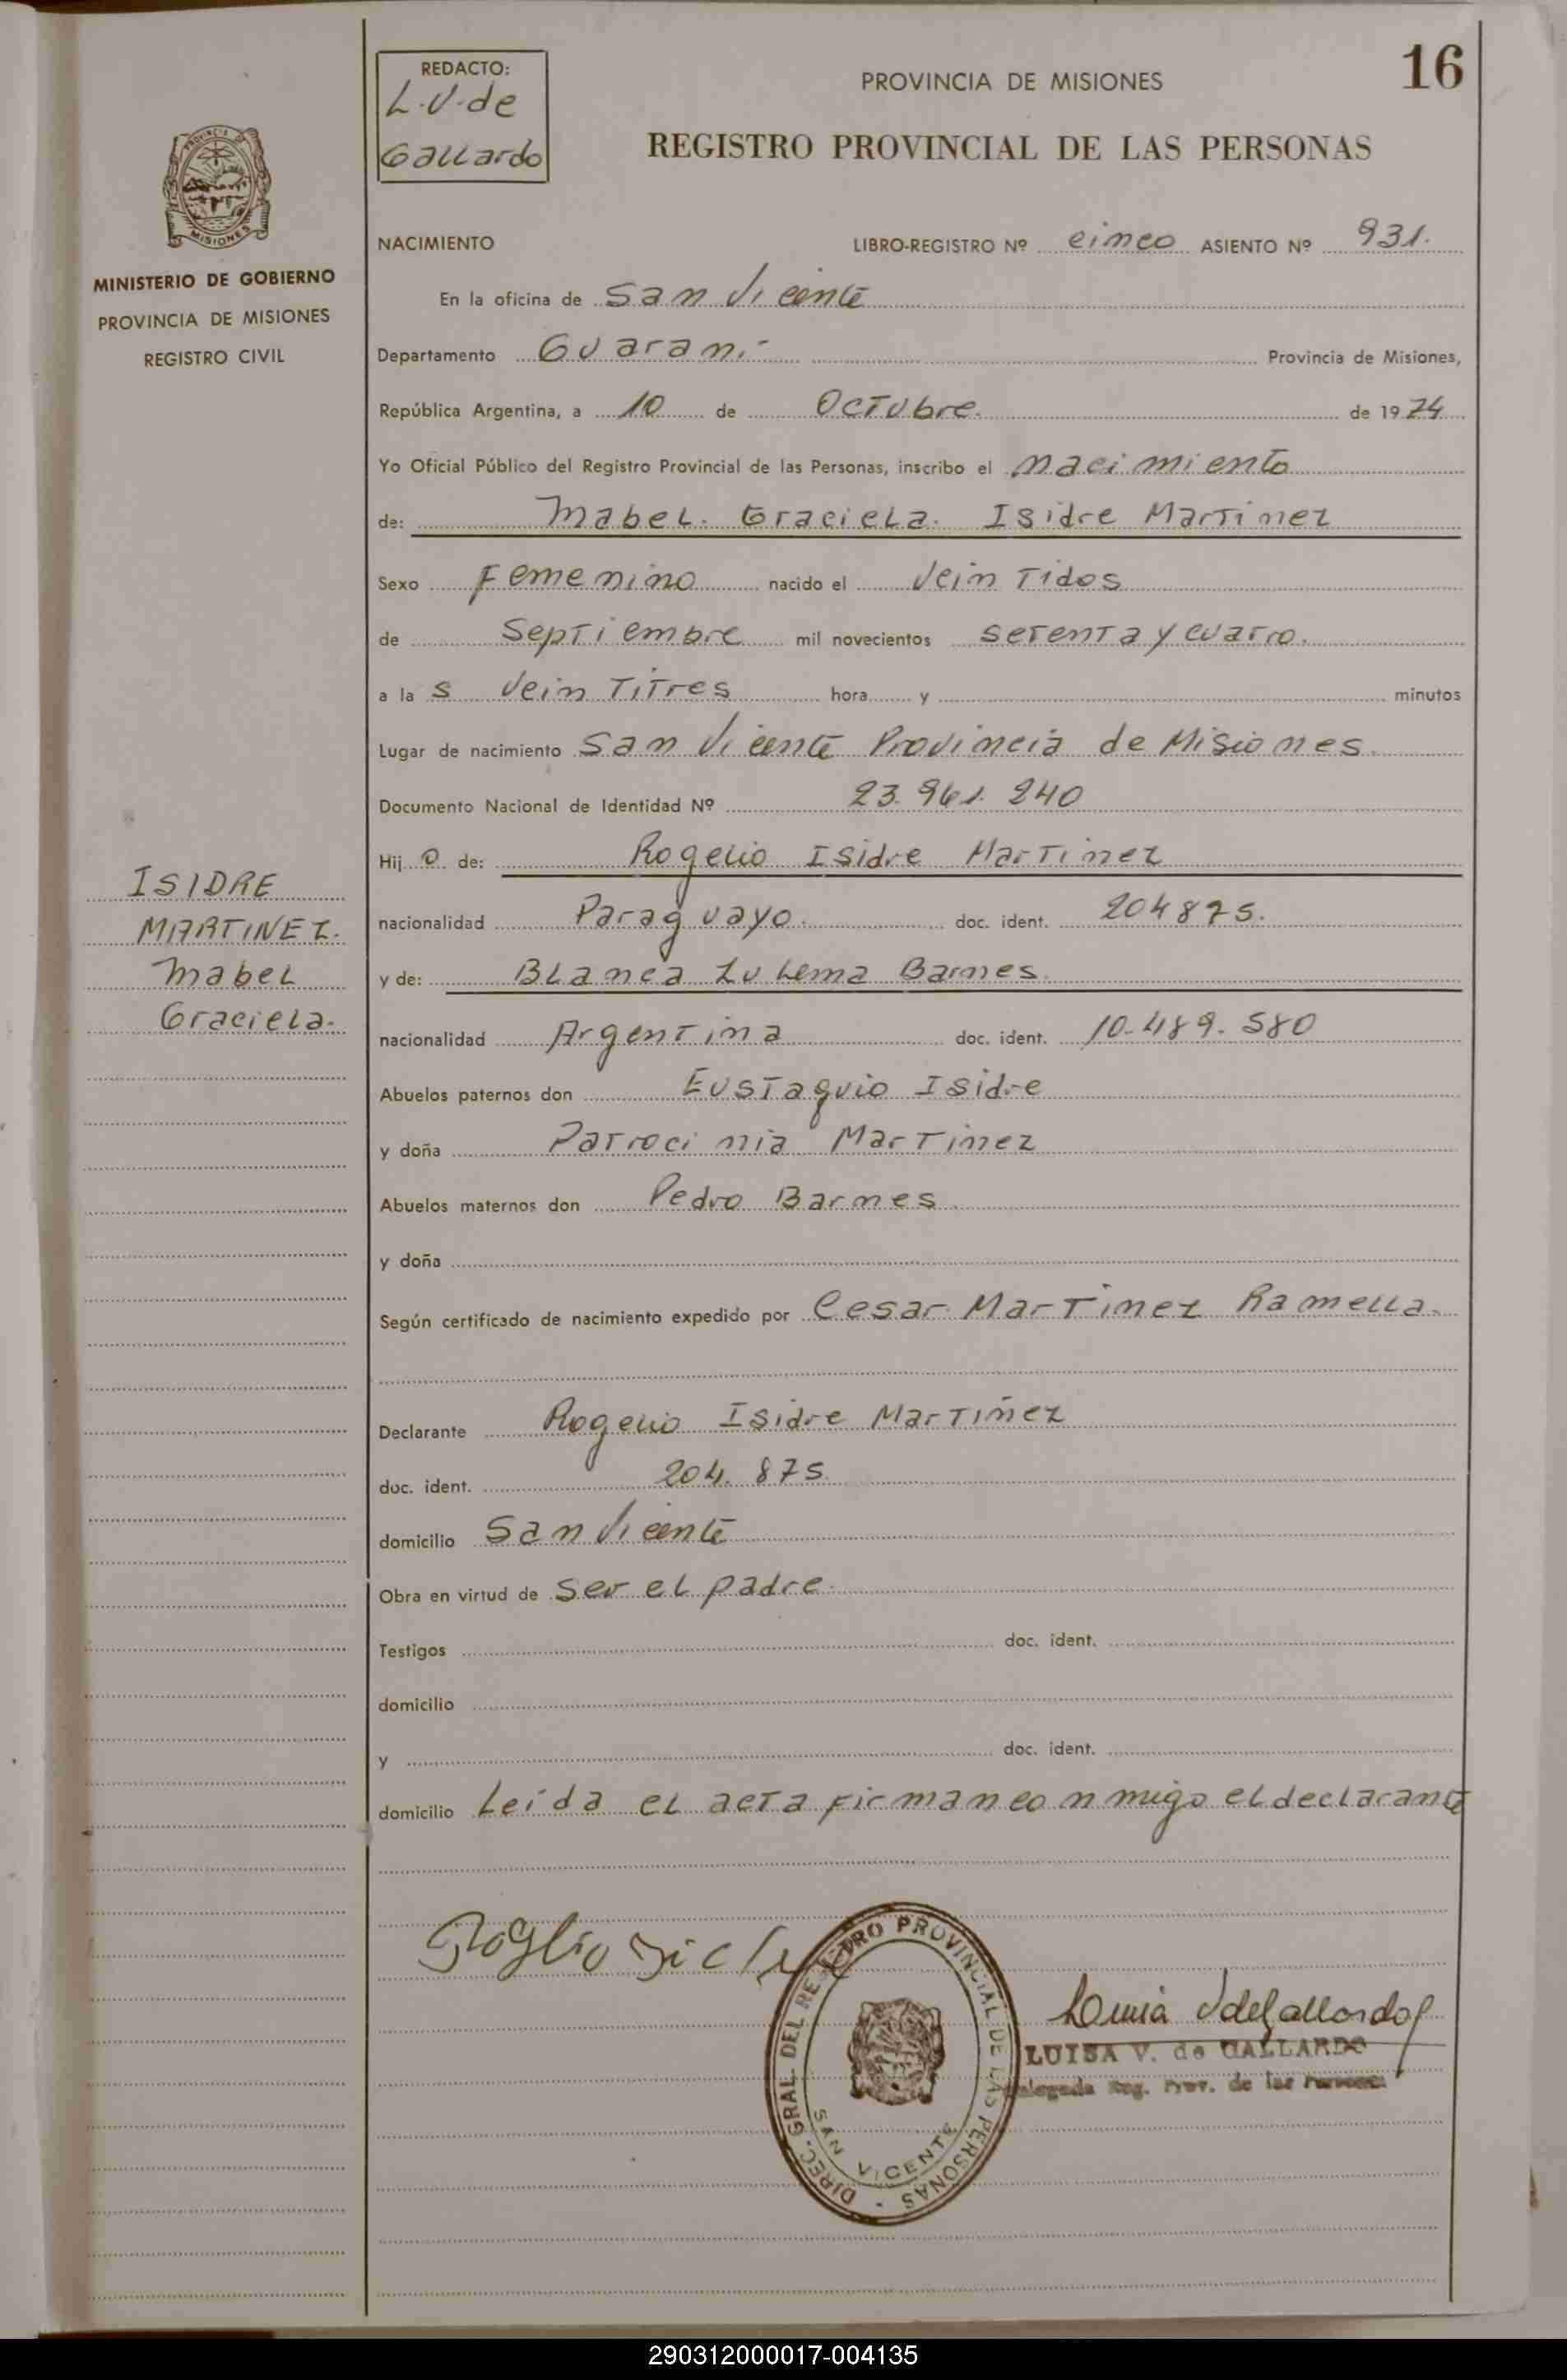 16
REDACTO:
L.V. de
Gallardo
PROVINCIA DE MISIONES
REGISTRO PROVINCIAL DE LAS PERSONAS
MINISTERIO DE GOBIERNO
PROVINCIA DE MISIONES
REGISTRO CIVIL
NACIMIENTO LIBRO-REGISTRO Nº cinco ASIENTO Nº 931.
En la oficina de San Vicente
Departamento Guaraní Provincia de Misiones,
República Argentina, a 10 de Octubre. de 1974
Yo Oficial Público del Registro Provincial de las Personas, inscribo el nacimiento
de: Mabel. Graciela. Isidre Martinez
Sexo Femenino nacido el Veintidos
de Septiembre mil novecientos setenta y cuatro.
a la s Veintitres hora y minutos
Lugar de nacimiento San Vicente Provincia de Misiones.
Documento Nacional de Identidad Nº 23.961.240
Hij o de: Rogelio Isidre Martinez
nacionalidad Paraguayo. doc. ident. 204875.
y de: Blanca Zulema Barnes.
nacionalidad Argentina doc. ident. 10.489.580
ISIDRE
MARTINEZ.
Mabel
Graciela.
Abuelos paternos don Eustaquio Isidre
y doña Patrocinia Martinez
Abuelos maternos don Pedro Barnes
y doña
Según certificado de nacimiento expedido por Cesar Martinez Ramella.
Declarante Rogelio Isidre Martiñez
doc. ident. 204.875.
domicilio San Vicente
Obra en virtud de ser el padre.
Testigos doc. ident.
domicilio
y doc. ident.
domicilio Leída el acta firman conmigo el declarante
DIREC. GRAL. DEL REGISTRO PROVINCIAL DE LAS PERSONAS -
SAN VICENTE
LUISA V. de GALLARDO
Delegada Reg. Prov. de las Personas
290312000017-004135